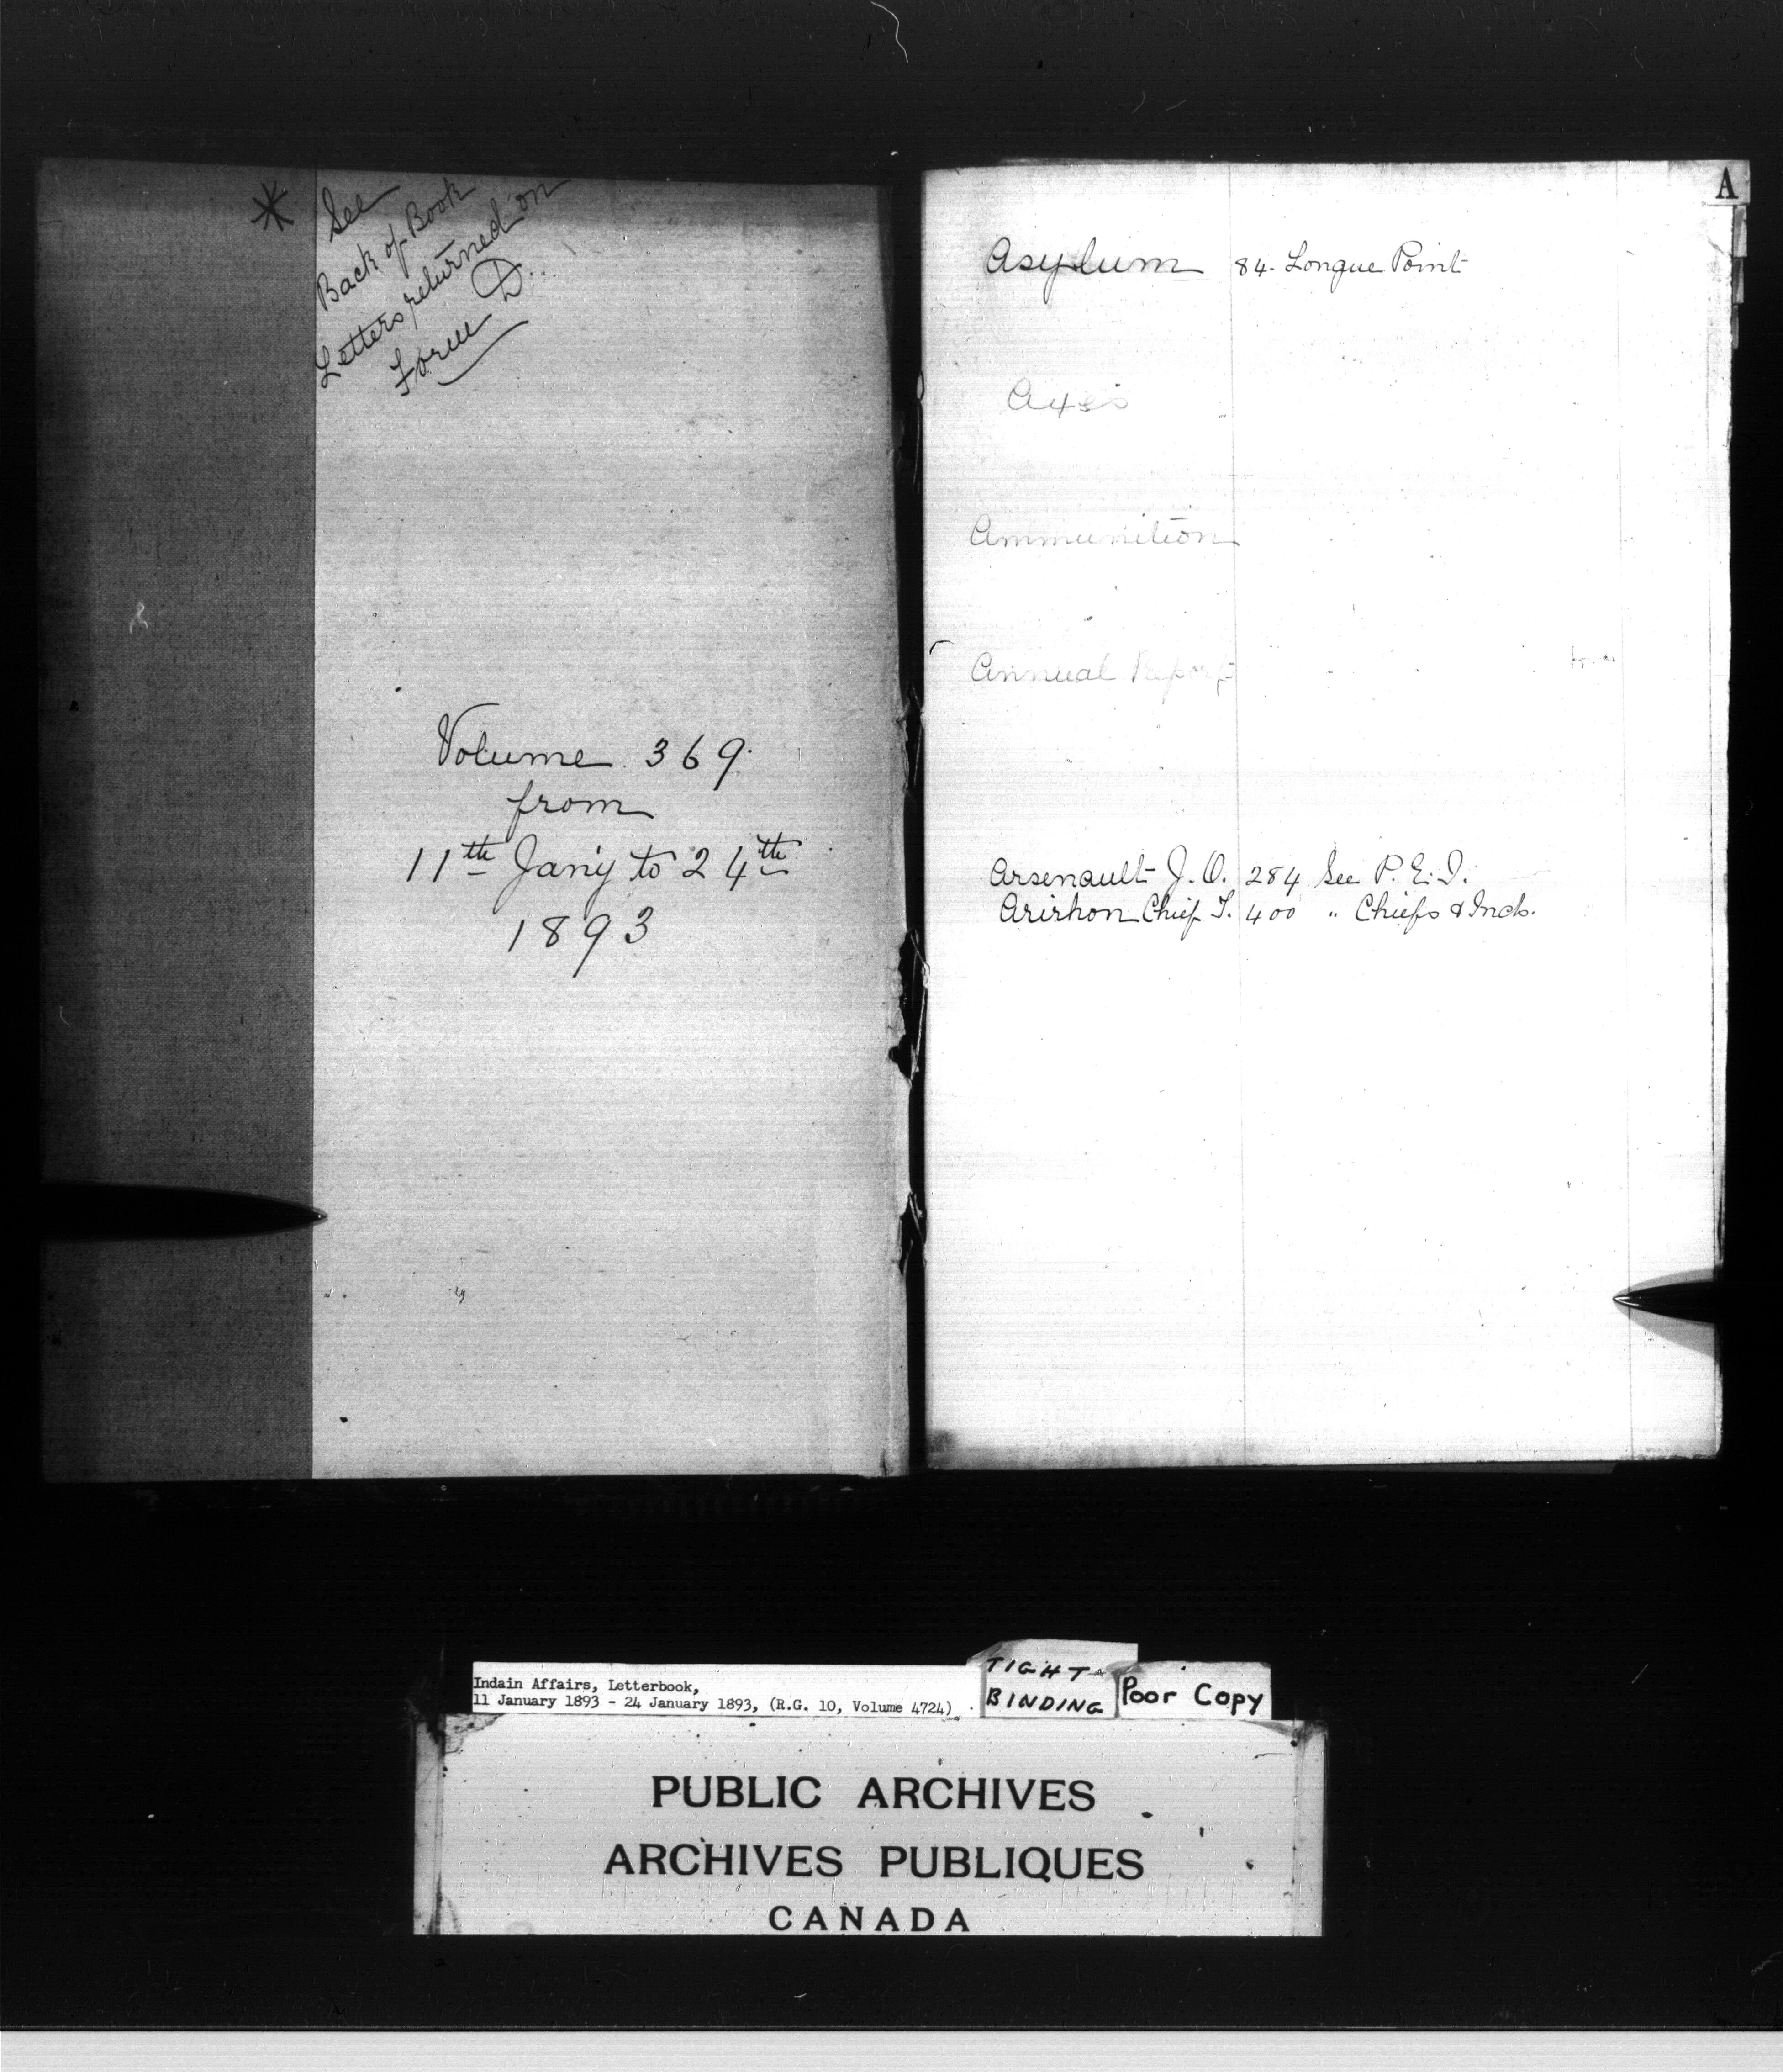 * See
Back of Book
Letters returned on
Form D.
Volume 369.
from
11th Jan'y to 24th
1893
A
Asylum 84. Longue Point
Axes
Ammunition
Annual Report
Arsenault J. O. 284 See P. E. I.
Arirhon Chief T. 400 " Chiefs & Inds.
Indain Affairs, Letterbook,
11 January 1893 - 24 January 1893, (R.G. 10, Volume 4724) .
TIGHT
BINDING
Poor Copy
PUBLIC ARCHIVES
ARCHIVES PUBLIQUES
CANADA